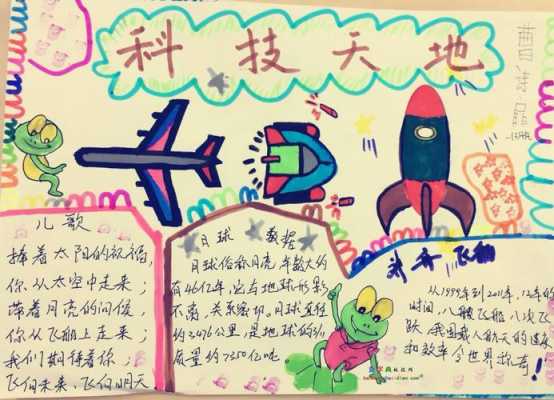 科技天地
儿歌
捧着太阳的祝福,
你从太空中走来;
带着月亮的问候,
你从飞船上走来;
我们期待着你;
飞向未来,飞向明天
月球 数据
月球俗称月亮,年龄大约
有46亿年,它与地球形影
不离,关系密切,月球直径
约3476公里,是地球的3/11
质量约7350亿吨
神舟飞船
从1999年到2011年,12年的
时间,八艘飞船,八次飞
跃,我国载人航天的速度
和效率令世界称奇!